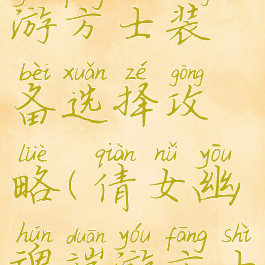 游方士装
bèi xuǎn zé gōng
备选择攻
lüè qiàn nǚ yōu
略(倩女幽
hún duān yóu fāng shì
魂端游方士